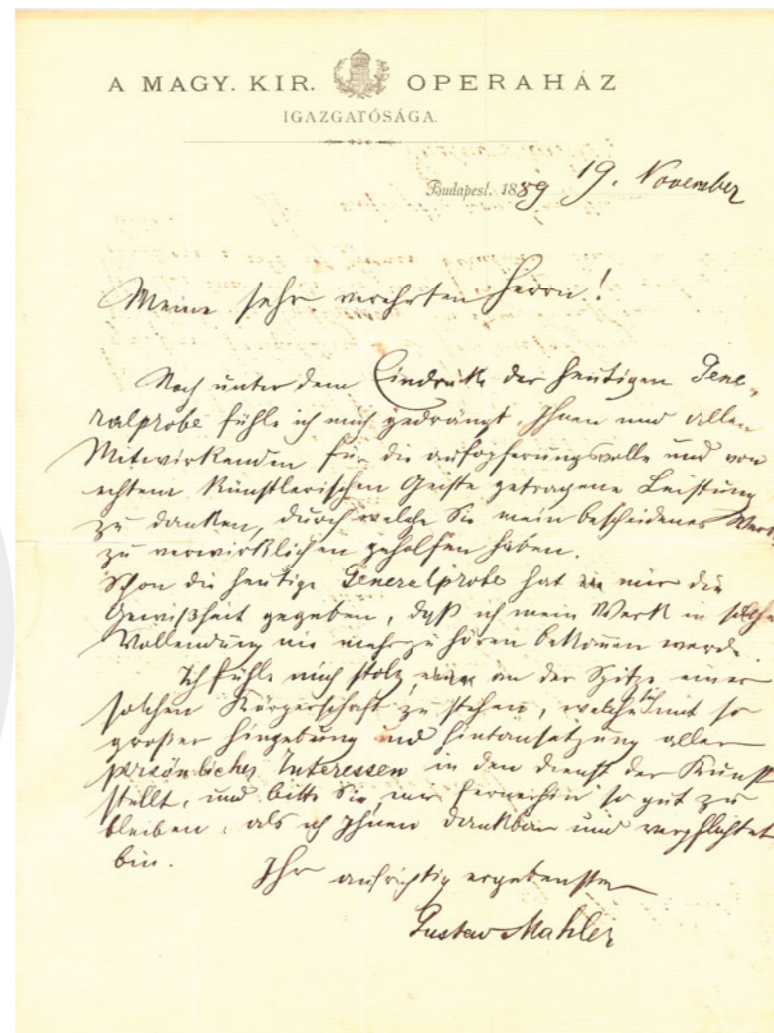 A MAGY. KIR. OPERAHÁZ
IGAZGATÓSÁGA.
Budapest, 1889 19. November
Meine sehr verehrten Herrn!
Noch unter dem Eindruck der heutigen Gene-
ralprobe fühle ich mich gedrängt, Ihnen und allen
Mitwirkenden für die aufopferungsvolle und von
echtem künstlerischen Geiste getragene Leistung
zu danken, durch welche Sie mein bescheidenes Werk
zu verwirklichen geholfen haben.
Schon die heutige Generalprobe hat mir die
Gewißheit gegeben, daß ich mein Werk in solcher
Vollendung nie mehr zu hören bekommen werde.
Ich fühle mich stolz, an der Spitze einer
solchen Körperschaft zu stehen, welche sich mit so
großer Hingebung und Hintansetzung aller
persönlichen Interessen in den Dienst der Kunst
stellt, und bitte Sie, mir fernerhin so gut zu
bleiben, als ich Ihnen dankbar und verpflichtet
bin.
Ihr aufrichtig ergebenster
Gustav Mahler